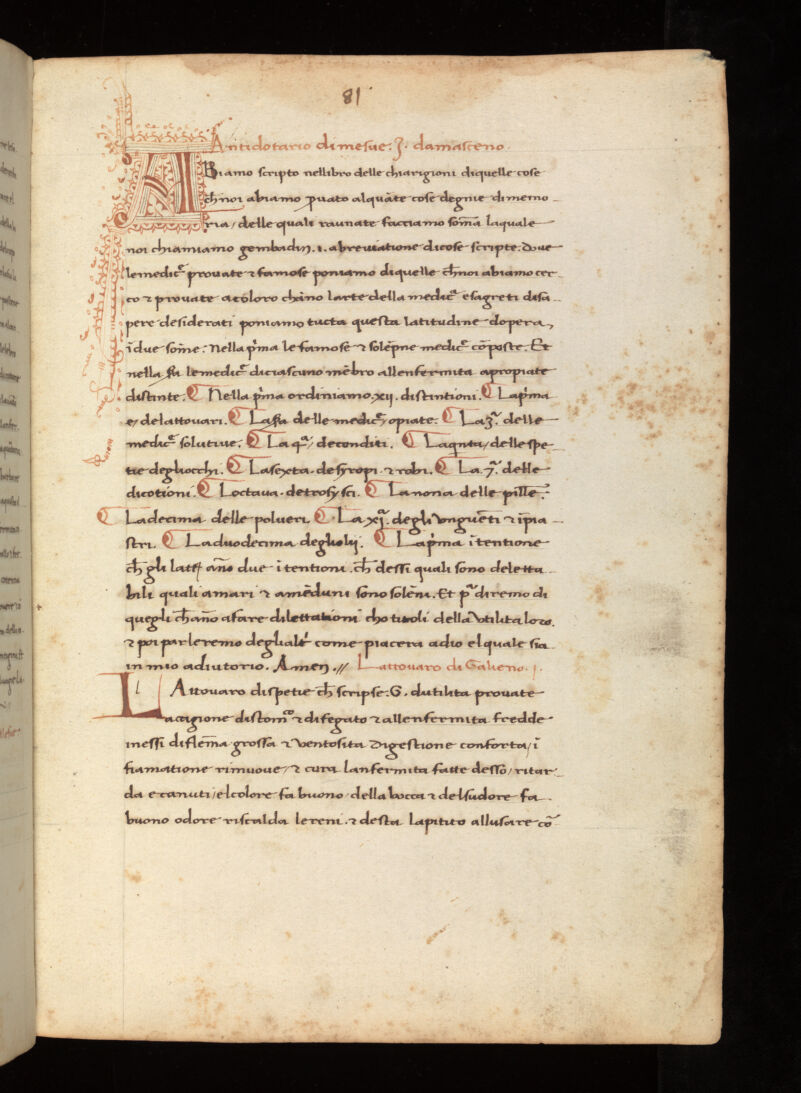 81
Antidotario di mesue. J. damasceno.
ABiamo scripto nellibro delle chiarigioni diquelle cose
ch̄ noi abiamo ꝓuato alquāte cose degnie dimemo-
ria / delle quali raunate facciamo som̄a laquale
noi chiamiamo gembadin .i. abreuiatione dicose scripte. Doue
lemedicͤ prouate ⁊ famose poniamo diquelle ch̄ noi abiamo cer-
co ⁊ prouate acoloro chāno larte della medicͣ esagreti disa-
pere desiderati poniamo tucta questa latitudine dopera,
ī due som̄e. Nella pͥma le famose ⁊ solēpne medicͤ cōposte. Et
nella ẜa lemedicͤ diciascuno mēbro allenfermita apropiate
distinte. ¶ Nella pͥma ordiniamo .xii. distintioni. ¶ Lapͥma
e / delattouari. ¶ Laẜa delle medicͤ opiate. ¶ La .3ͣ. delle
medicͤ solutiue. ¶ La qͣ / deconditi. ¶ Laqͥnta / delle spe-
tie degliocchi. ¶ Lasexta. desyropi . ⁊ robi. ¶ La .7ͣ. delle
dicotioni. ¶ Loctaua. detrosysci. ¶ La nona delle pille.
¶ Ladecima delle polueri. ¶ La xiͣ. degli Vnguēti ⁊ īpia-
stri. ¶ Laduodecima deglolij. ¶ Lapͥma ītentione
ch̄ gli latt̄ āno due ītentioni. ch̄ dessi quali sono deletta-
bili quali amari ⁊ amēduni sono solēni. Et pͣ diremo di
quegli ch̄ āno afare dilettationi cho titoli della Vtilita loro.
⁊ poi parleremo deglialt̄ come piacera adio elquale sia
in mio adiutorio. Amen. // Lattouaro di Galieno. j.
LAttouaro dispetie ch̄ scripse .G. dutilita prouate
acagione distomͣco ⁊ difegato ⁊ allenfermita fredde
messi diflem̄a grossa ⁊ Ventosita Digestione conforta / ī
fiamatione rimuoue / ⁊ cura lanfermita fatte desso / ritar-
da ecanuti / elcolore fa buono della bocca ⁊ delsudore fa
buono odore riscalda lereni. ⁊ desta lapitito allusare cō